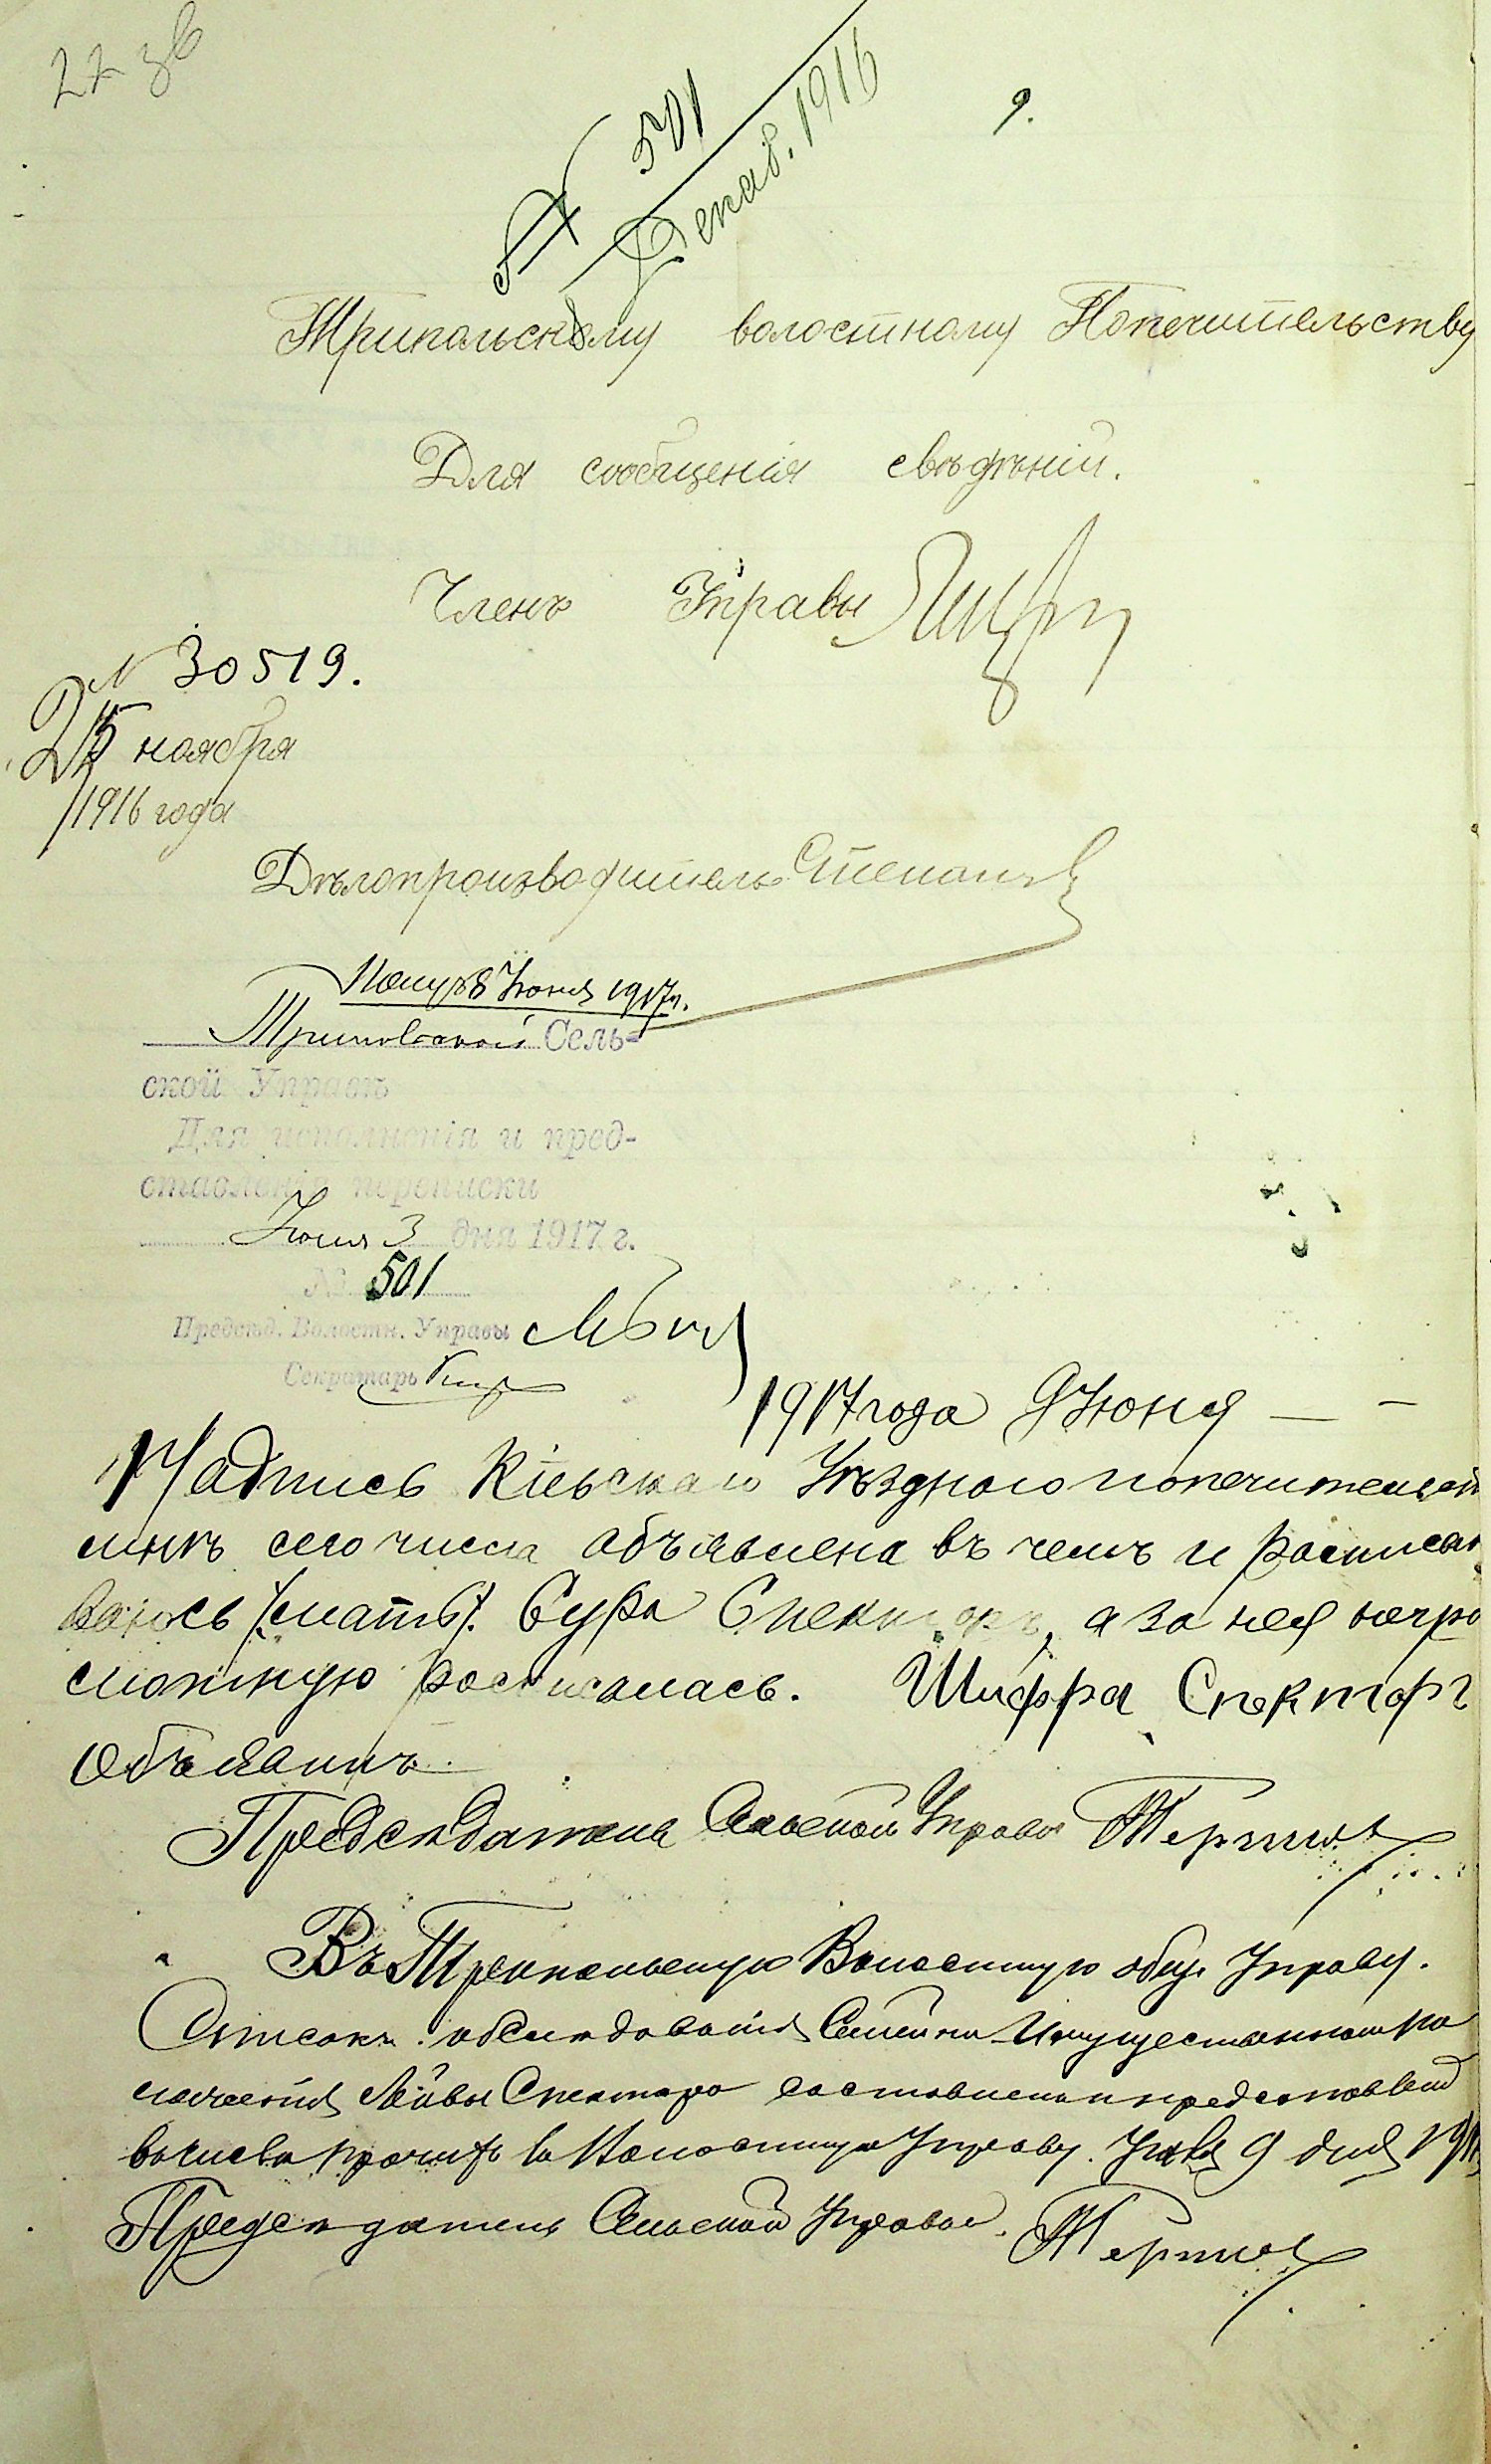 9.
№ 501
Декаб. 1916
Трипольскому волостному Попечительству
Для сообщенія свѣдѣній.
Членъ Управы
N 30519.
25 ноября
1916 года
Дѣлопроизводитель Степанов
Получ 8 Июня 1917 г.
Трипольской Сель-
ской Управѣ
Для исполненія и пред-
ставленія переписки
Июня 3 дня 1917 г.
№ 501
Предсѣд. Волостн. Управы
Секретарь
1917 года 9 Июня
Надпись Кіевскаго Уѣзднаго попечительст
сего числа объявлена въ чемъ и росписы
ваюсь (мать). Сура Спекторъ, а за нея негра
мотную росписалась. Шифра Спекторъ
Объявилъ
Предсѣдатель Сельской Управы
Въ Трипольскую Волостную общ. Управу.
Списокъ обслѣдованія Семейно-Имущественнаго по
ложенія Лейвы Спектора составленъ и представлен
въ числѣ прочихъ въ Волостную Управу. Июня 9 дня 191
Предсѣдатель Сельской Управы.